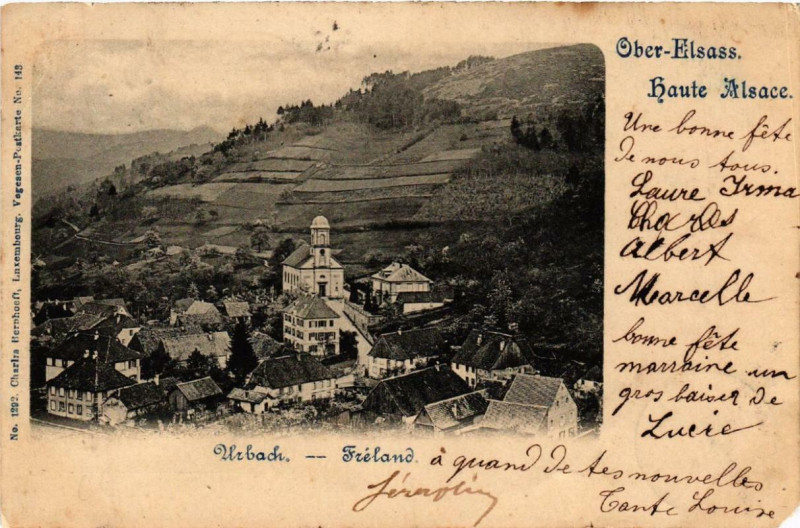 Ober-Elsass.
Haute Alsace.
Une bonne fête
De nous tous.
Laure Irma
Charles
Albert
Marcelle
bonne fête
marraine un
gros baiser de
Lucie
No. 1292. Charles Bernhoeft, Luxembourg. Vogesen-Postkarte No. 143
Urbach. -- Fréland.
à quand De tes nouvelles
Tante Louise